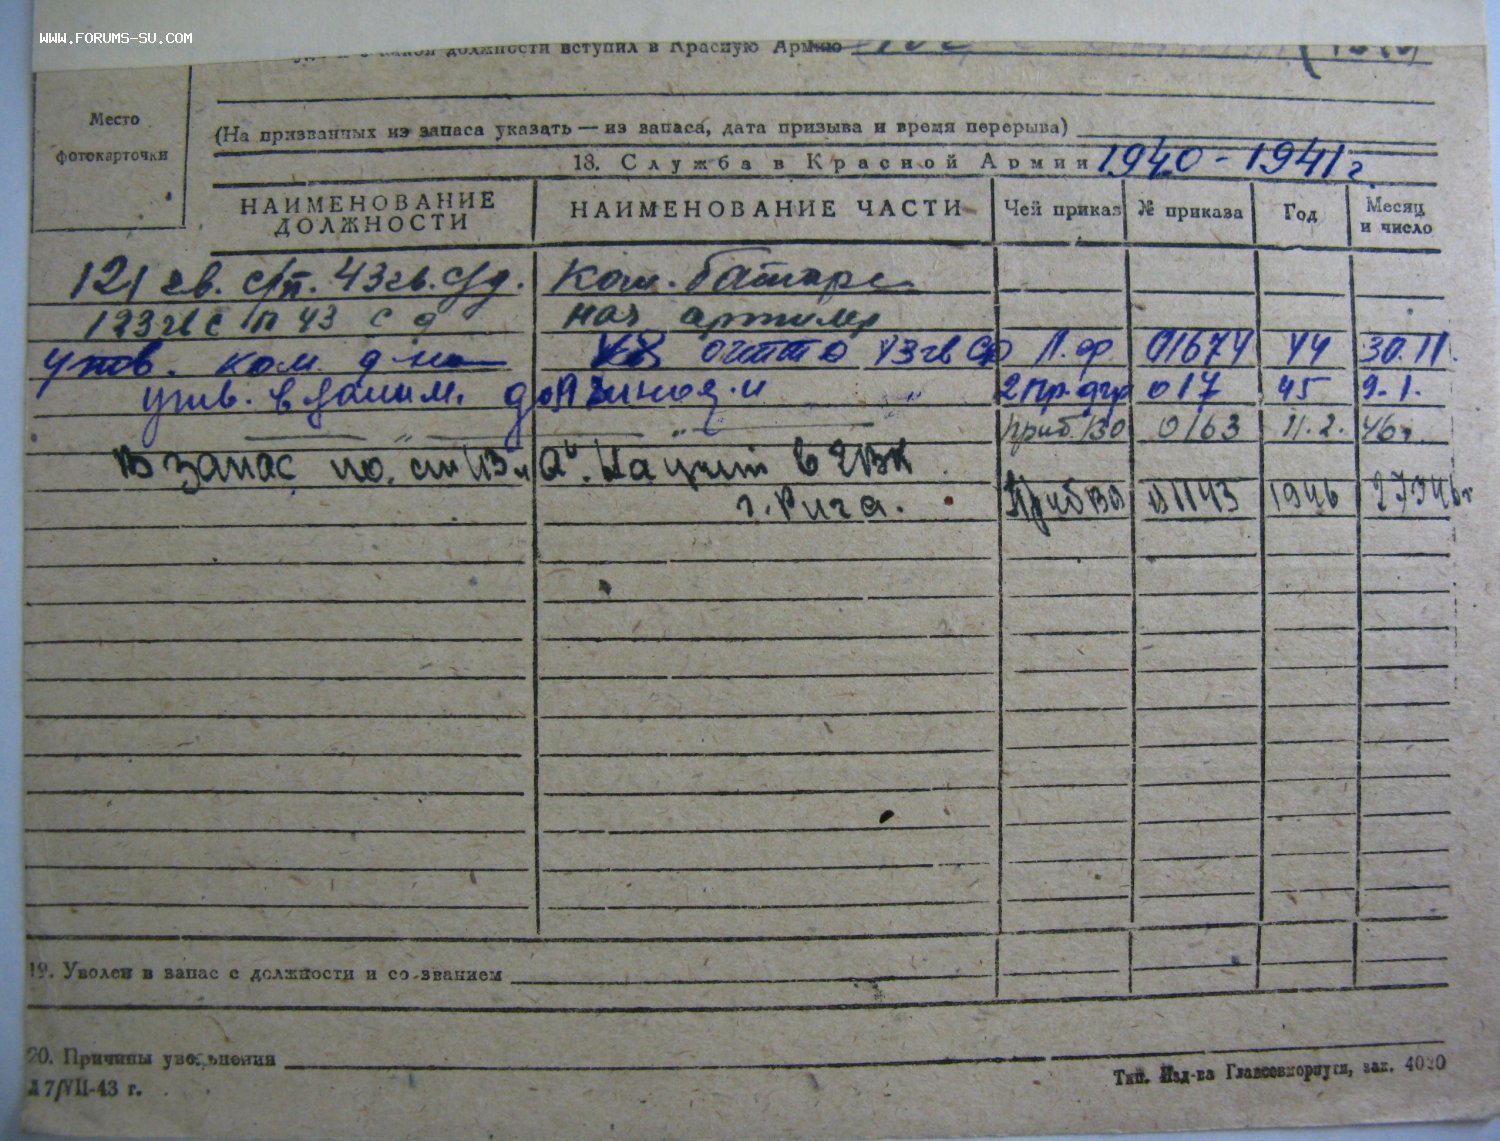 WWW.FORUMS-SU.COM
должности вступил в Красную Армию
Место
фотокарточки
(На призванных из запаса указать — из запаса, дата призыва и время перерыва)
18. Служба в Красной Армии 1940-1941 г.
НАИМЕНОВАНИЕ ДОЛЖНОСТИ НАИМЕНОВАНИЕ ЧАСТИ Чей приказ № приказа Год Месяц и число
121 гв. с/п. 43 гв. с/д. Ком. батаре
123 гв с п 43 с д нач артилер
утв. ком. д-на 43 гв Л. ф 01674 44 30.11.
утв. в заним. должности 2 Пр. фр 017 45 9.1.
— „ — — „ — Приб. ВО 0163 11.2. 46 г.
В запас по. ст 43 п „а". На учет в ГВК
г. Рига. ПрибВО 1143 1946
19. Уволен в запас с должности и со званием
20. Причины увольнения
Л 7/VII-43 г.
Тип. Изд-ва Главсевморпути, зак. 4020